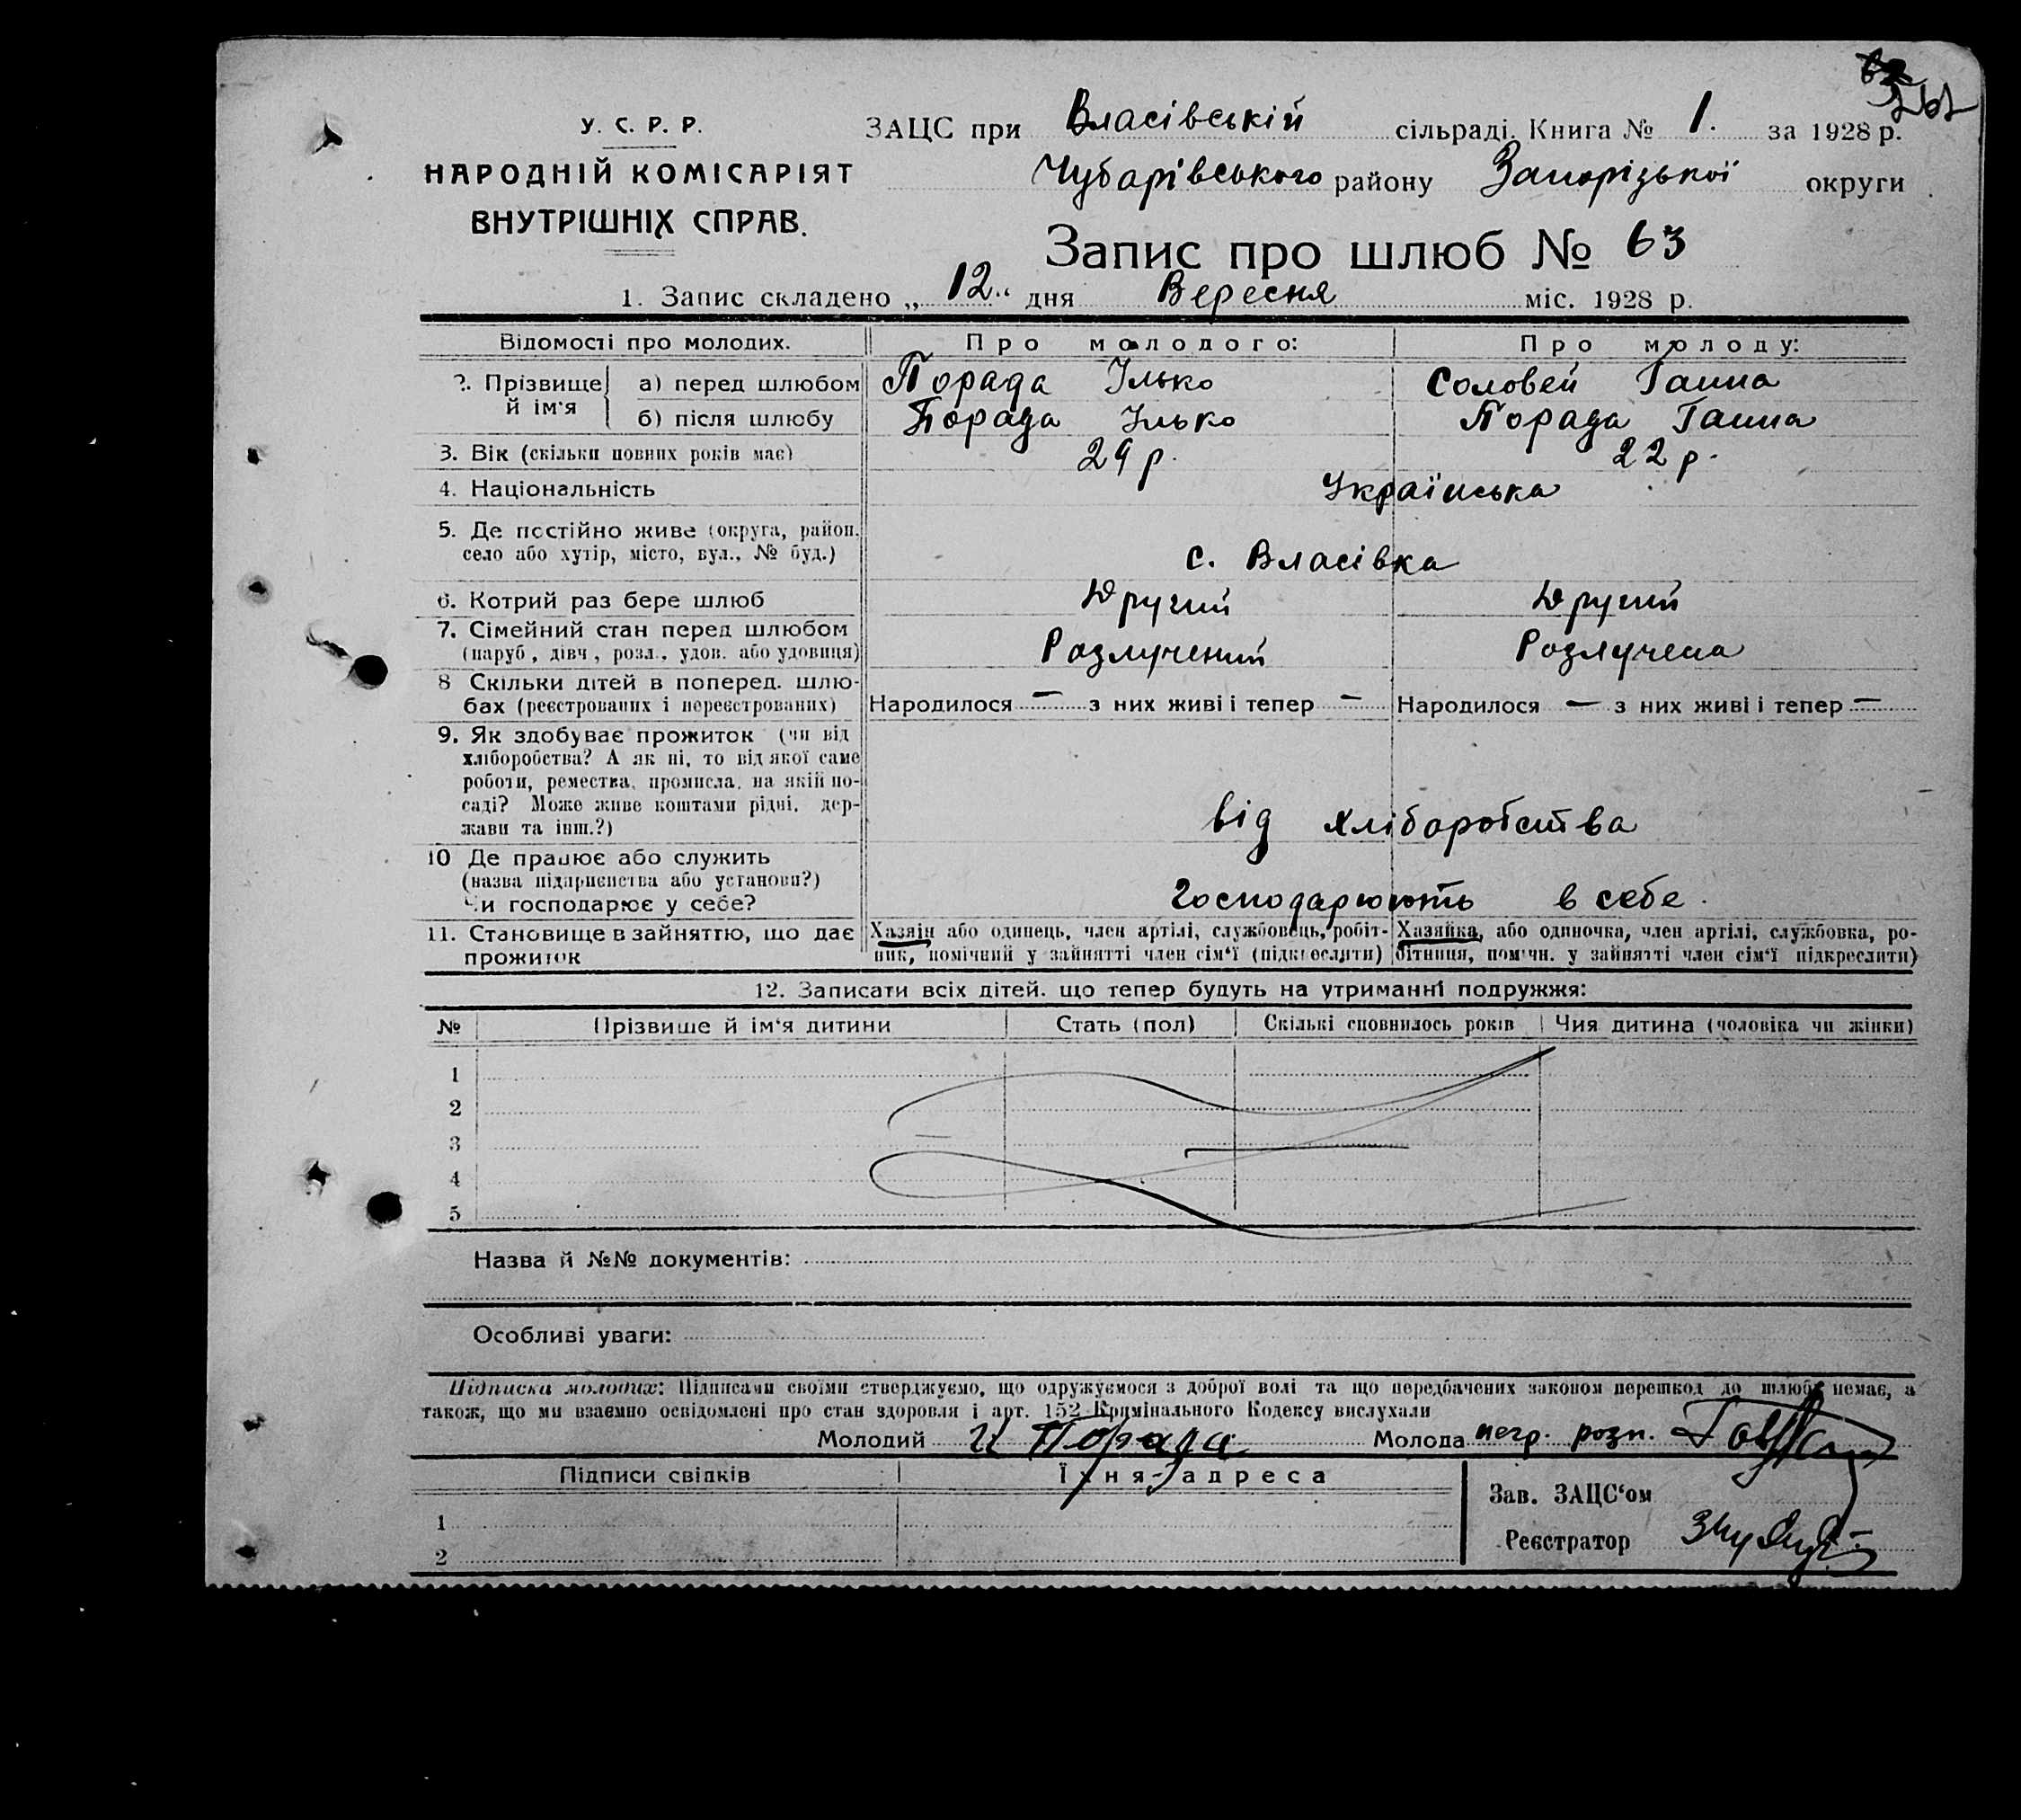 262
У. С. Р. Р.
НАРОДНІЙ КОМІСАРІЯТ
ВНУТРІШНІХ СПРАВ.
ЗАЦС при Власівській сільраді. Книга № 1. за 1928 р.
Чубарівського району Запорізької округи
Запис про шлюб № 63
1. Запис складено „ 12 “ дня Вересня міс. 1928 р.
Відомості про молодих. Про молодого: Про молоду:
2. Прізвище й ім'я а) перед шлюбом Порада Ілько Соловей Ганна
б) після шлюбу Порада Ілько Порада Ганна
3. Вік (скільки повних років має) 29 р. 22 р.
4. Національність Українська
5. Де постійно живе (округа, район,
село або хутір, місто, вул., № буд.) с. Власівка
6. Котрий раз бере шлюб Другий Другий
7. Сімейний стан перед шлюбом
(паруб, дівч, розл., удов. або удовиця) Розлучений Розлучена
8 Скільки дітей в поперед. шлю-
бах (реєстрованих і нереєстрованих) Народилося — з них живі і тепер — Народилося — з них живі і тепер —
9. Як здобуває прожиток (чи від
хліборобства? А як ні, то від якої саме
роботи, ремества, промисла, на якій по-
саді? Може живе коштами рідні, дер-
жави та інш.?) від хліборобства
10 Де працює або служить
(назва підприємства або установи?)
Чи господарює у себе? Господарюють в себе.
11. Становище в зайняттю, що дає
прожиток
Хазяїн або одинець, член артілі, службовець, робіт-
ник, помічний у зайнятті член сім'ї (підкреслити)
Хазяйка, або одиночка, член артілі, службовка, ро-
бітниця, помічн. у зайнятті член сім'ї підкреслити)
12. Записати всіх дітей. що тепер будуть на утриманні подружжя:
№ Прізвише й ім'я дитини Стать (пол) Скількі сповнилось років Чия дитина (чоловіка чи жінки)
1
2
3
4
5
Назва й №№ документів:
Особливі уваги:
Підписка молодих: Підписами своїми стверджуємо, що одружуємося з доброї волі та що передбачених законом перешкод до шлюбу немає, а
також, що ми взаємно освідомлені про стан здоровля і арт. 152 Кримінального Кодексу вислухали
Молодий И Порада Молода негр. розп.
Підписи свідків Їхня адреса
Зав. ЗАЦС'ом
1
Реєстратор
2